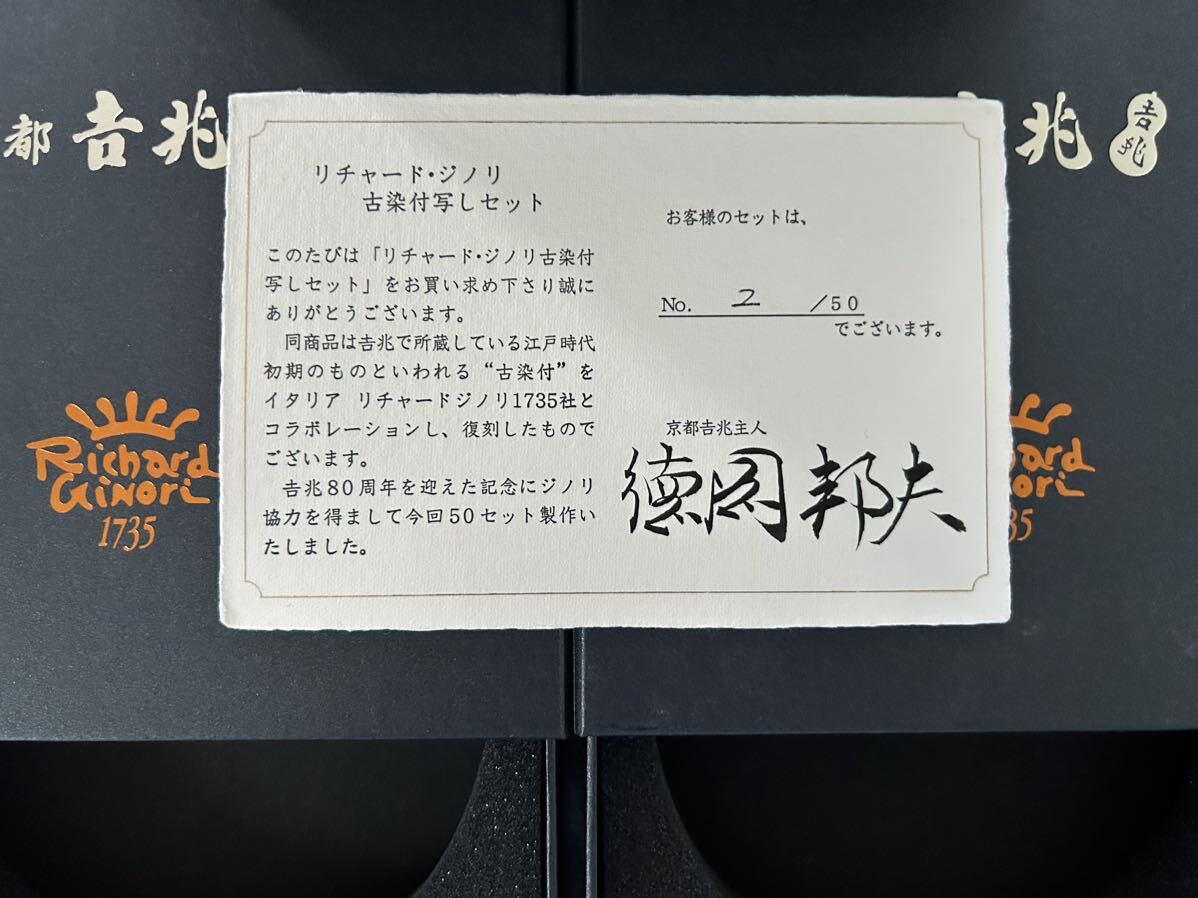 都 𠮷兆
兆 𠮷兆
リチャード・ジノリ
古染付写しセット
このたびは「リチャード・ジノリ古染付
写しセット」をお買い求め下さり誠に
ありがとうございます。
同商品は𠮷兆で所蔵している江戸時代
初期のものといわれる“古染付”を
イタリア リチャードジノリ1735社と
コラボレーションし、復刻したもので
ございます。
𠮷兆80周年を迎えた記念にジノリ
協力を得まして今回50セット製作い
たしました。
お客様のセットは、
No. 2 /50
でございます。
京都𠮷兆主人
徳岡邦夫
Richard
Ginori
1735
ard
nori
35